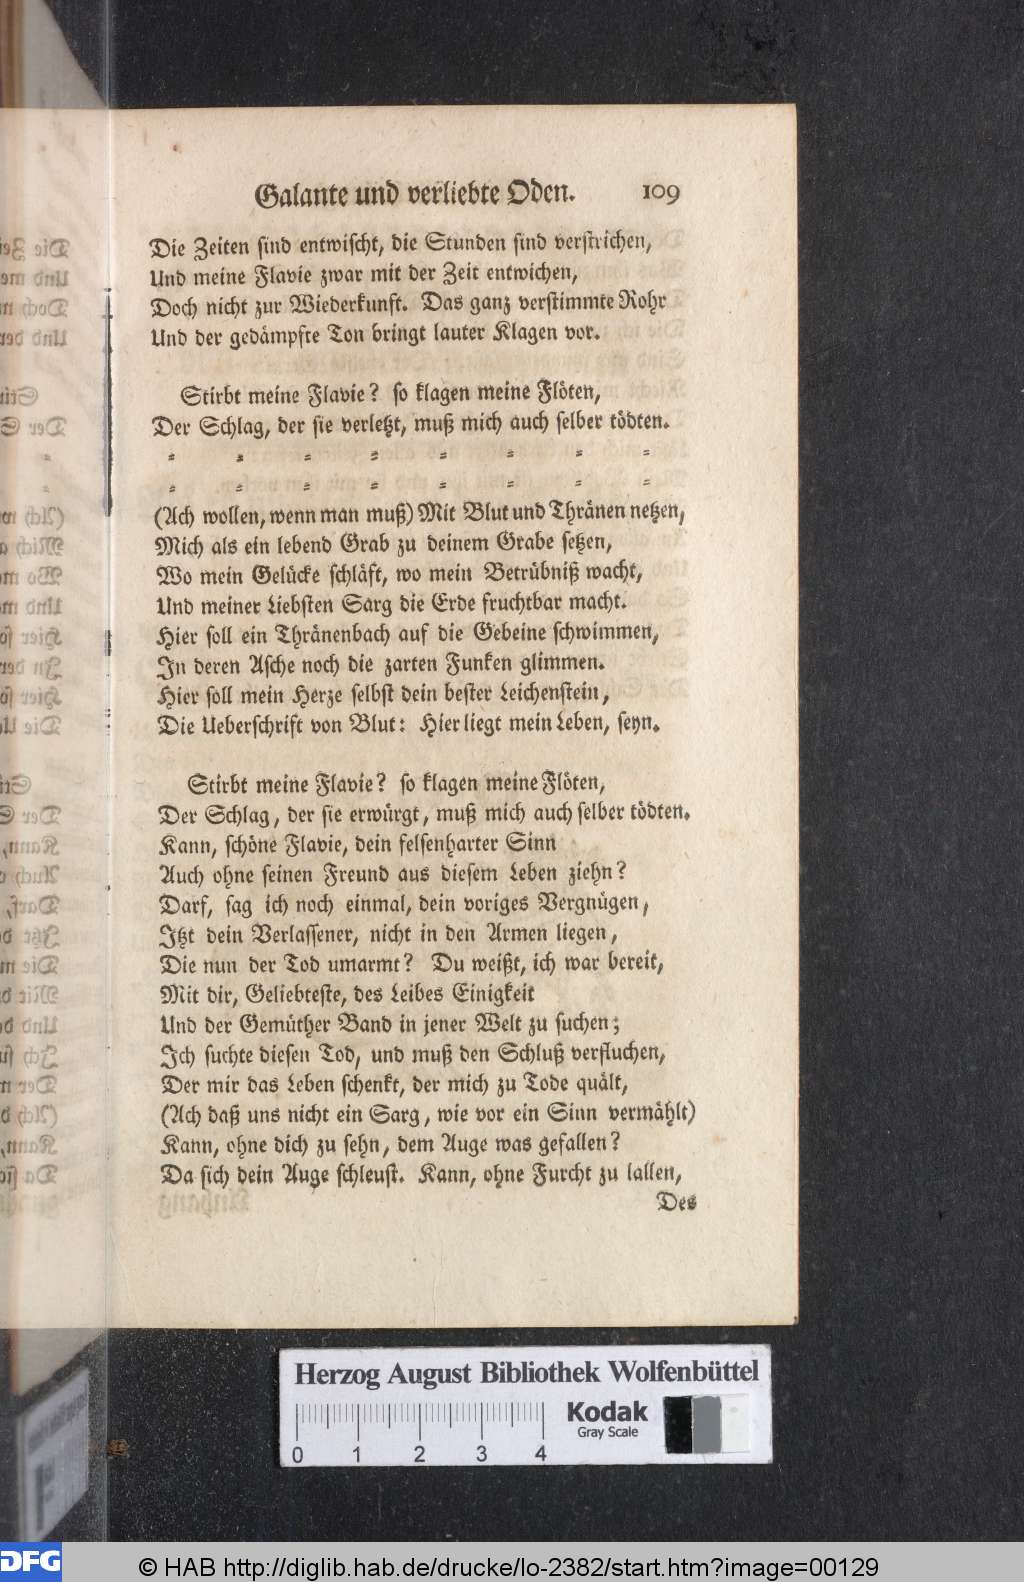 Galante und verliebte Oden. 109
Die Zeiten sind entwischt, die Stunden sind verstrichen,
Und meine Flavie zwar mit der Zeit entwichen,
Doch nicht zur Wiederkunft. Das ganz verstimmte Rohr
Und der gedämpfte Ton bringt lauter Klagen vor.
Stirbt meine Flavie? so klagen meine Flöten,
Der Schlag, der sie verletzt, muß mich auch selber tödten.
= = = = = = = =
= = = = = = = =
(Ach wollen, wenn man muß) Mit Blut und Thränen netzen,
Mich als ein lebend Grab zu deinem Grabe setzen,
Wo mein Gelücke schläft, wo mein Betrübniß wacht,
Und meiner Liebsten Sarg die Erde fruchtbar macht.
Hier soll ein Thränenbach auf die Gebeine schwimmen,
In deren Asche noch die zarten Funken glimmen.
Hier soll mein Herze selbst dein bester Leichenstein,
Die Ueberschrift von Blut: Hier liegt mein Leben, seyn.
Stirbt meine Flavie? so klagen meine Flöten,
Der Schlag, der sie erwürgt, muß mich auch selber tödten.
Kann, schöne Flavie, dein felsenharter Sinn
Auch ohne seinen Freund aus diesem Leben ziehn?
Darf, sag ich noch einmal, dein voriges Vergnügen,
Itzt dein Verlassener, nicht in den Armen liegen,
Die nun der Tod umarmt? Du weißt, ich war bereit,
Mit dir, Geliebteste, des Leibes Einigkeit
Und der Gemüther Band in jener Welt zu suchen;
Ich suchte diesen Tod, und muß den Schluß verfluchen,
Der mir das Leben schenkt, der mich zu Tode quält,
(Ach daß uns nicht ein Sarg, wie vor ein Sinn vermählt)
Kann, ohne dich zu sehn, dem Auge was gefallen?
Da sich dein Auge schleust. Kann, ohne Furcht zu lallen,
Des
Herzog August Bibliothek Wolfenbüttel
Kodak
Gray Scale
0 1 2 3 4
DFG © HAB http://diglib.hab.de/drucke/lo-2382/start.htm?image=00129